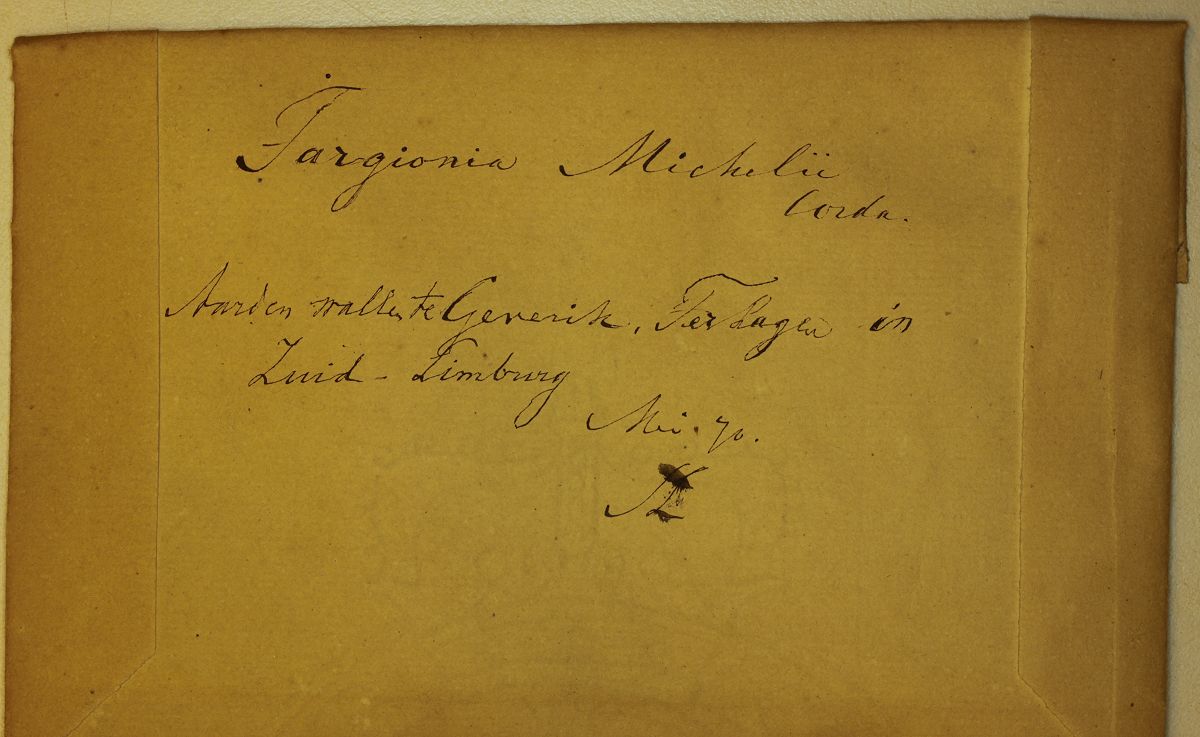 Targionia Michelii
Corda.
Aarden wallen te Geverik, Ter Hagen in
Zuid-Limburg
Mei 70.